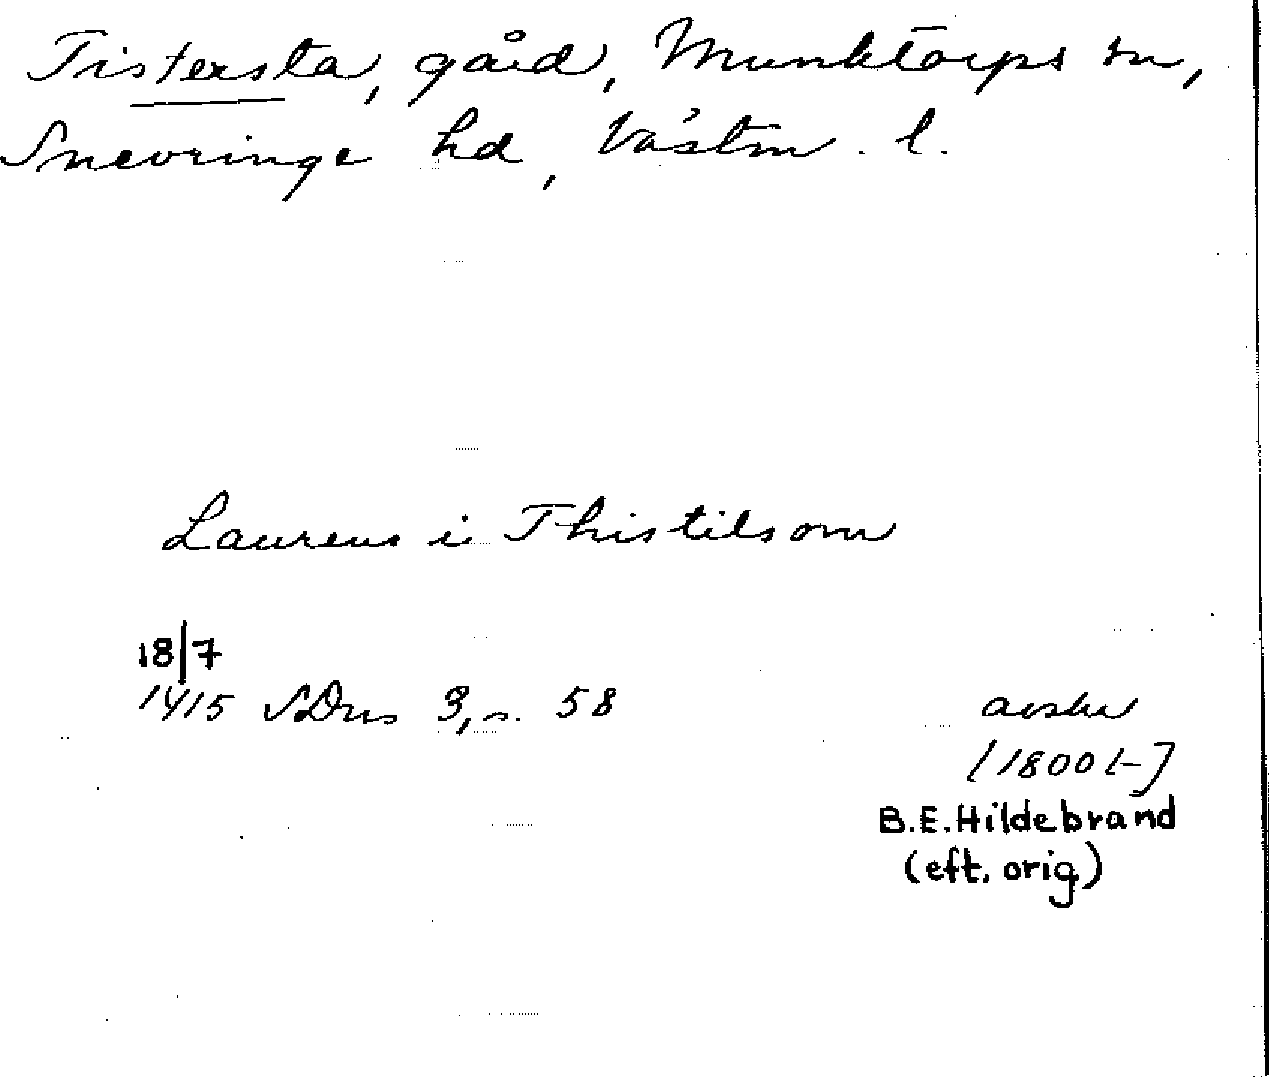 Tistersta, gård, Munktorps sn,
Snevringe hd, Västm. l.
Laurens i Thistilsom
18/7
1415 SDns 3, s. 58
avskr
[1800 t-]
B.E. Hildebrand
(eft. orig)